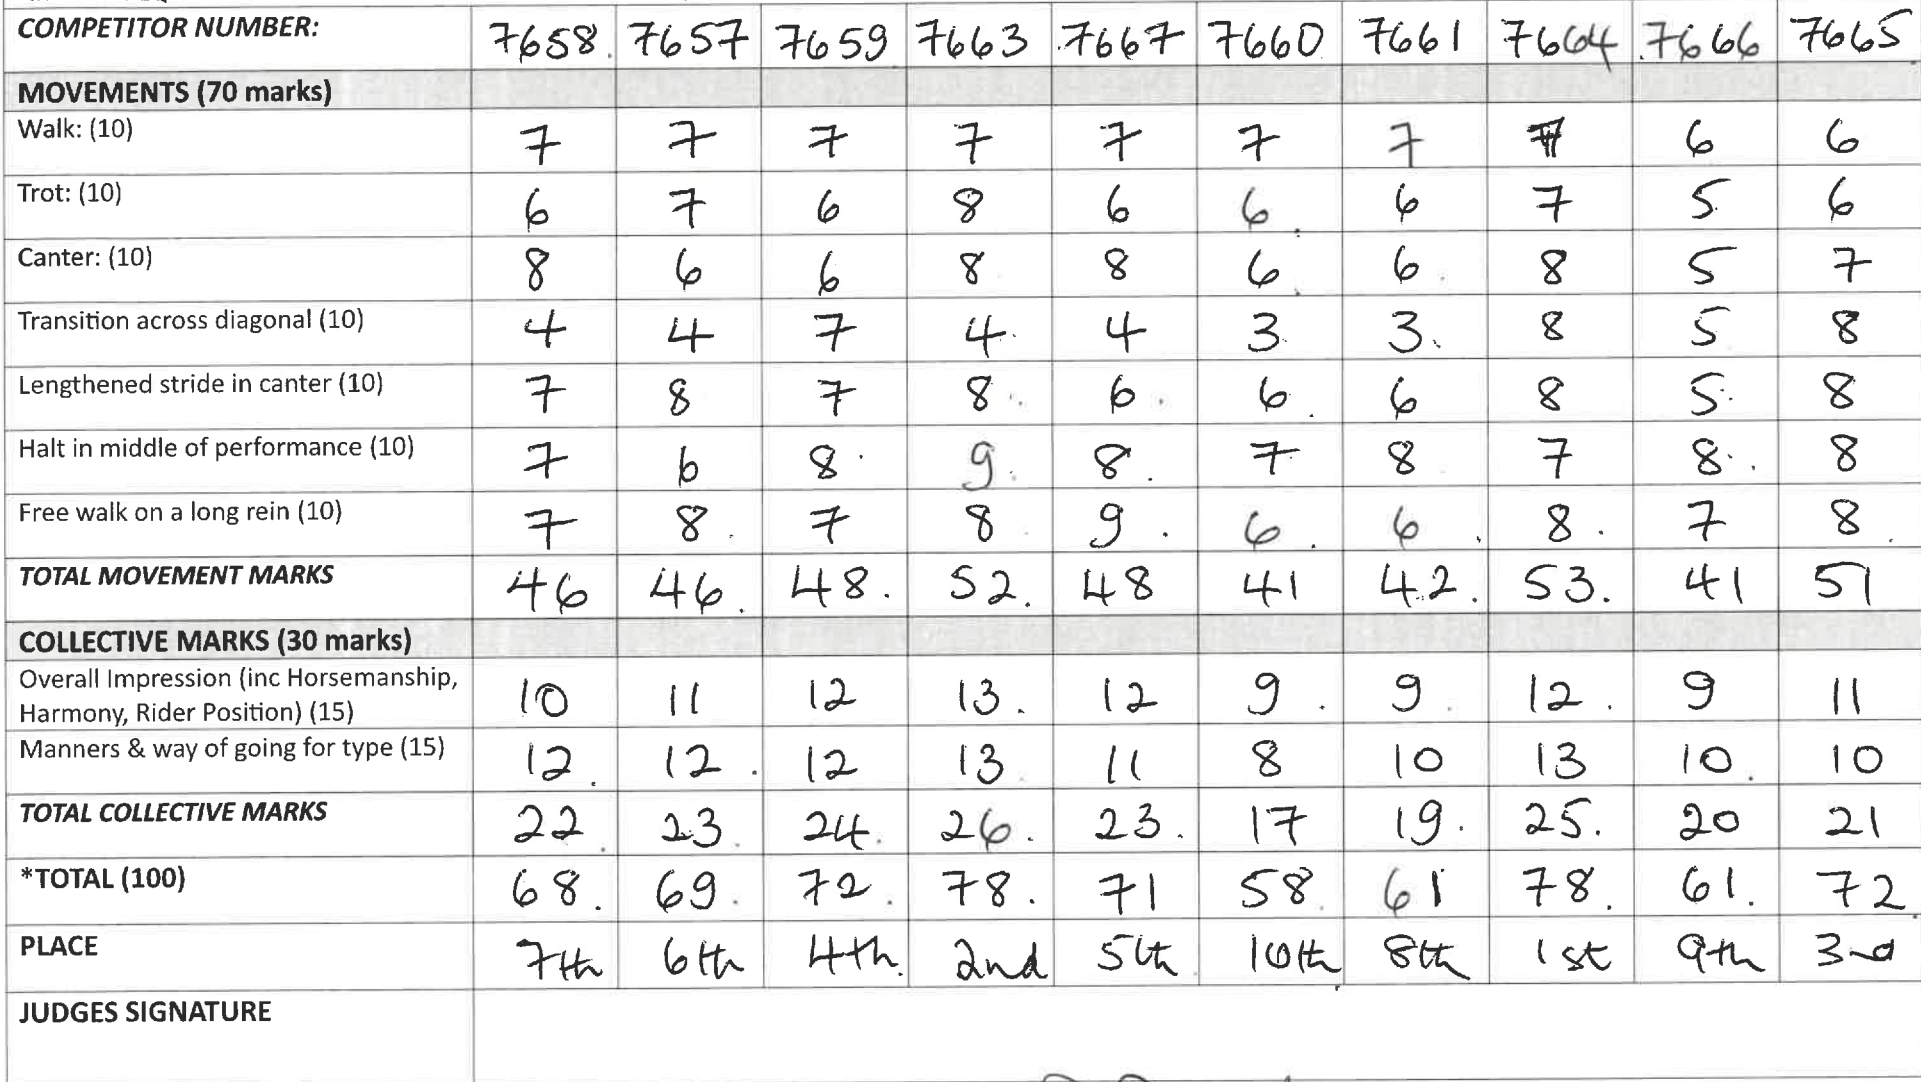 COMPETITOR NUMBER: 7658. 7657 7659 7663 7667 7660 7661 7664 7666 7665
MOVEMENTS (70 marks)
Walk: (10) 7 7 7 7 7 7 7 7 6 6
Trot: (10) 6 7 6 8 6 6 6 7 5 6
Canter: (10) 8 6 6 8 8 6 6 8 5 7
Transition across diagonal (10) 4 4 7 4 4 3 3 8 5 8
Lengthened stride in canter (10) 7 8 7 8 6 6 6 8 5 8
Halt in middle of performance (10) 7 6 8 9 8 7 8 7 8 8
Free walk on a long rein (10) 7 8 7 8 9 6 6 8 7 8
TOTAL MOVEMENT MARKS 46 46. 48. 52. 48 41 42. 53. 41 51
COLLECTIVE MARKS (30 marks)
Overall Impression (inc Horsemanship,
Harmony, Rider Position) (15) 10 11 12 13. 12 9 9 12. 9 11
Manners & way of going for type (15) 12. 12. 12 13 11 8 10 13 10. 10
TOTAL COLLECTIVE MARKS 22. 23. 24. 26. 23. 17 19. 25. 20 21
*TOTAL (100) 68. 69. 72. 78. 71 58. 61 78. 61. 72
PLACE 7th 6th 4th. 2nd 5th 10th 8th 1st 9th 3rd
JUDGES SIGNATURE